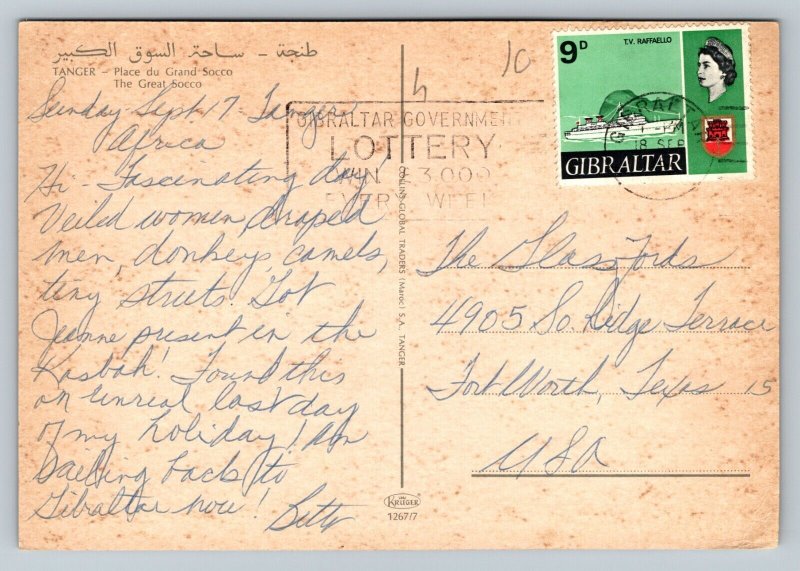 طنجة - ساحة السوق الكبير
TANGER - Place du Grand Socco
The Great Socco
Sunday - Sept 17 - Tangers
Africa
Hi - Fascinating day
Veiled women draped
men, donkeys, camels,
tiny streets. Got
Jeanne present in the
Kasbah! Found this
an unreal last day
of my holiday! Am
sailing back to
Gibraltar now!
Betty
GIBRALTAR GOVERNMENT
LOTTERY
WIN £3,000
EVERY WEEK
10
9D
T.V. RAFFAELLO
GIBRALTAR
GIBRALTAR
PM
18 SEP
The Glassfords
4905 So. Ridge Terrace
Fort Worth, Texas 15
USA
GLOBAL TRADERS (Maroc) S.A. TANGER
KRÜGER
1267/7